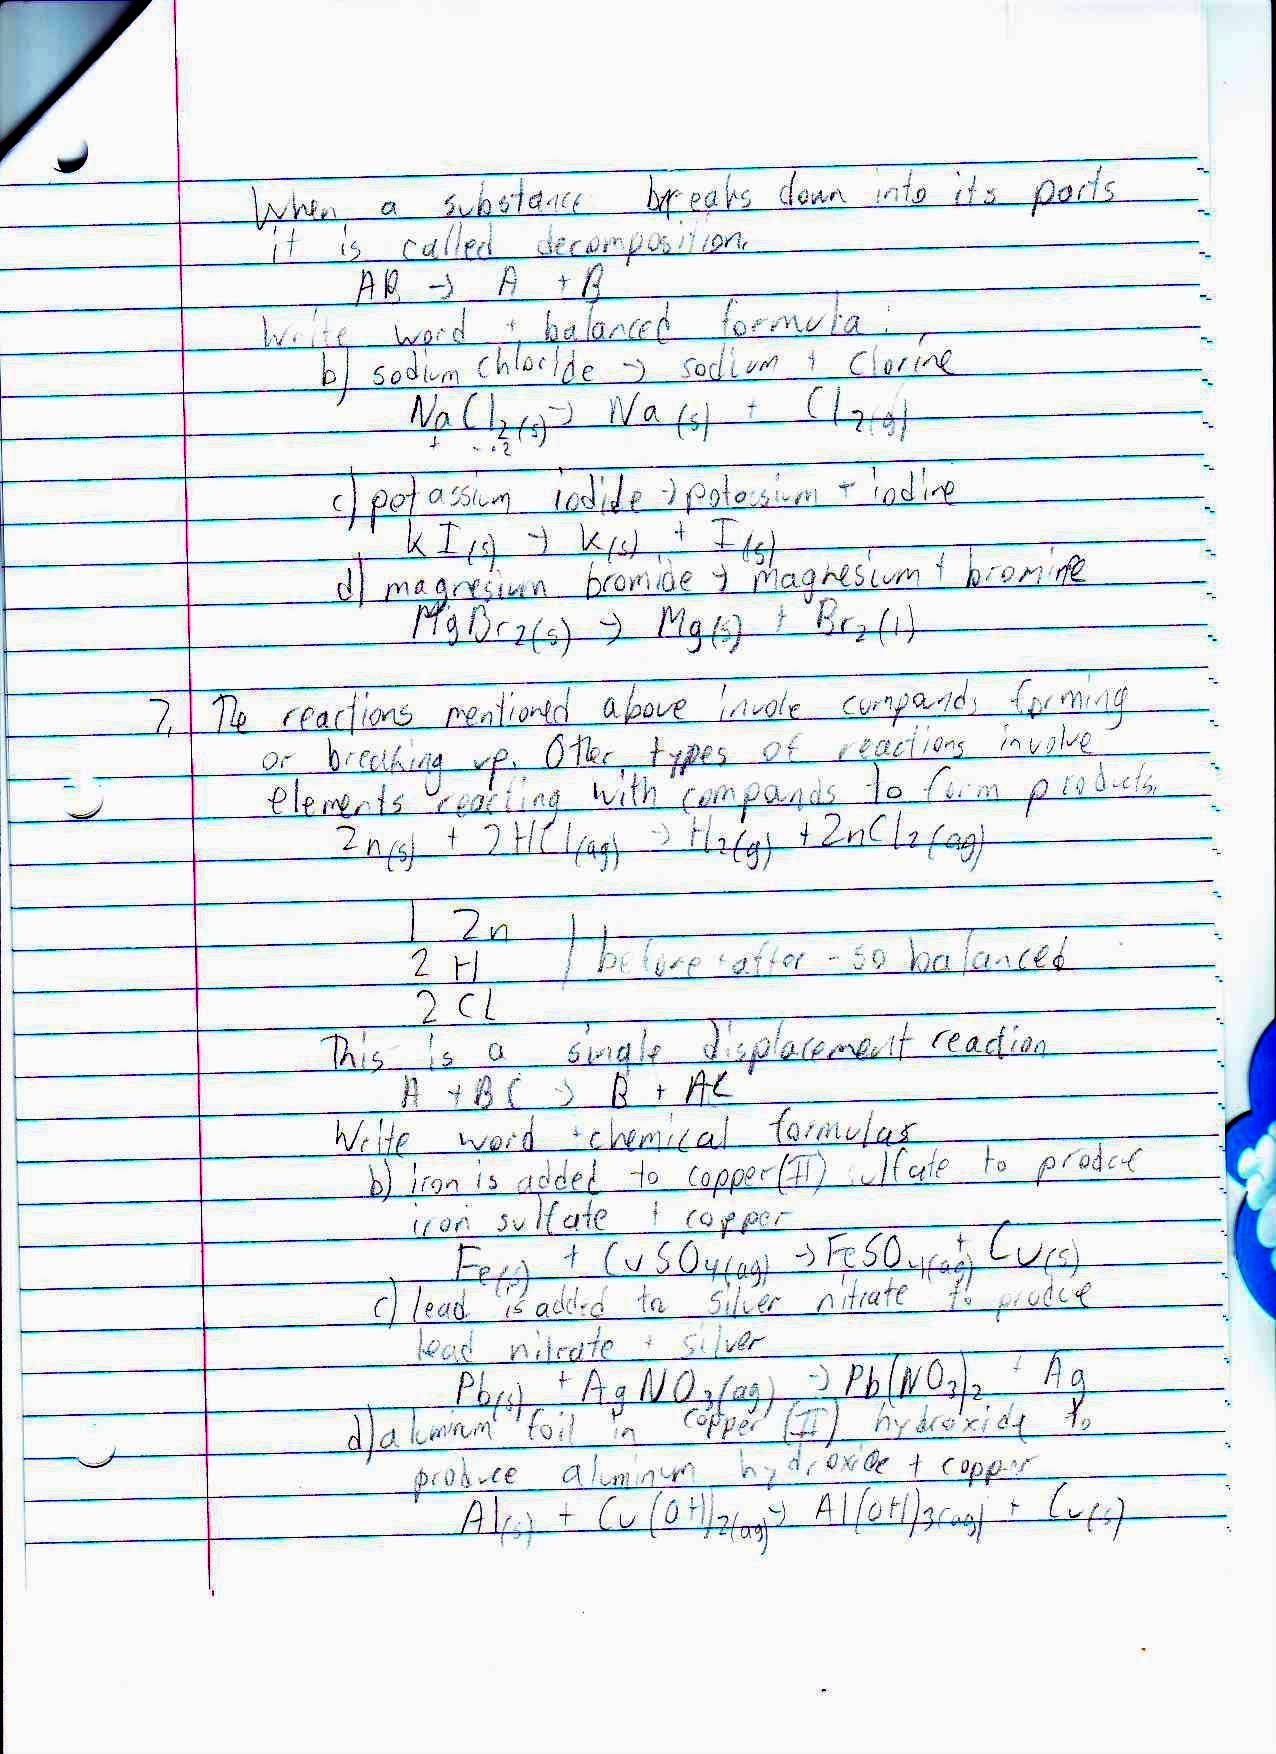 When a substance breaks down into its parts
it is called decomposition.
AB → A + B
Write word + balanced formula:
b) sodium chloride → sodium + clorine
NaCl2(s) → Na(s) + Cl2(g)
+ - 2
c) potassium iodide → potassium + iodine
KI(s) → K(s) + I(s)
d) magnesium bromide → magnesium + bromine
MgBr2(s) → Mg(s) + Br2(l)
7. The reactions mentioned above invole compands forming
or breaking up. Other types of reactions involve
elements reacting with compands to form products.
Zn(s) + 2HCl(ag) → H2(g) + ZnCl2(ag)
1 Zn
2 H before + after - so balanced
2 CL
This is a single displacement reaction
A + BC → B + AC
Write word + chemical formulas
b) iron is added to copper(II) sulfate to produce
iron sulfate + copper
Fe(s) + CuSO4(ag) → FeSO4(ag) + Cu(s)
c) lead is added to silver nitrate to produce
lead nitrate + silver
Pb(s) + AgNO3(ag) → Pb(NO3)2 + Ag
d) alumnum foil in copper (II) hydroxide to
produce aluminum hydroxide + copper
Al(s) + Cu(OH)2(ag) → Al(OH)3(ag) + Cu(s)